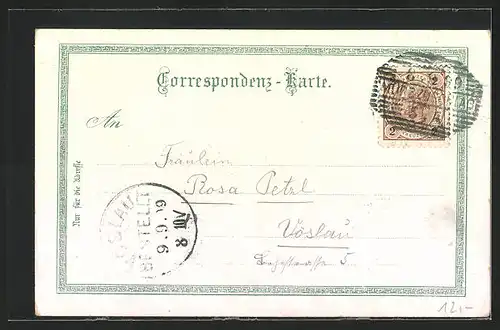 Correspondenz-Karte.
An
Nur für die Adresse
Fräulein
Rosa Petzl
Vöslau
5
VÖSLAU
BESTELLT
9.9.99
8 10V
2
12,-